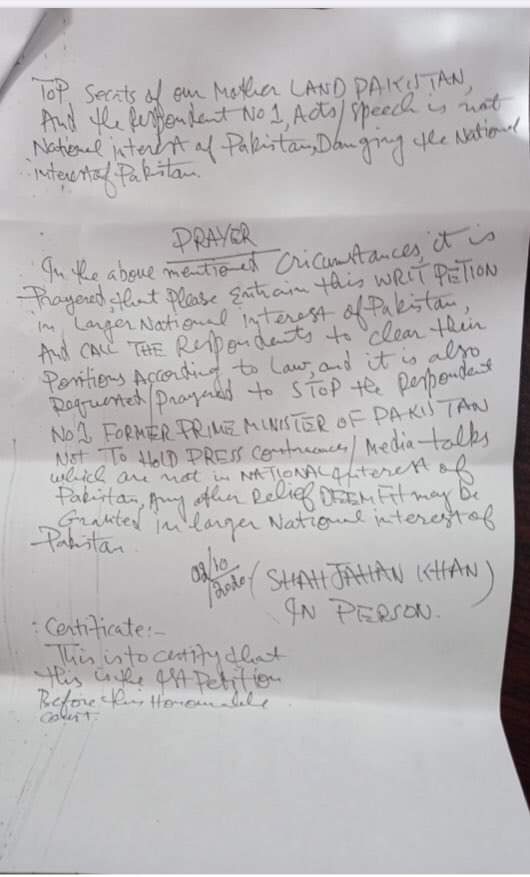 TOP Secrets of our Mother LAND PAKISTAN,
And the Respondent No 1, Acts/Speech is not
National interest of Pakistan, Damging the National
interest of Pakistan.
PRAYER
In the above mentioned Cricumstances, it is
Prayered, that Please Entrain this WRIT PETION
in Larger National interest of Pakistan,
And CALL THE Respondents to clear their
Positions According to Law, and it is also
Requested/prayered to STOP the Respondent
No 1 FORMER PRIME MINISTER OF PAKISTAN
NOT TO HOLD PRESS /Media talks
which are not in NATIONAL Interest of
Pakistan, Any other Relief DEEM Fit may be
Granted in larger National interest of
Pakistan.
02/10/2020 (SHAH JAHAN KHAN)
IN PERSON.
: Certificate:-
This is to certify that
this is the Petition
Before this Honourable
court.